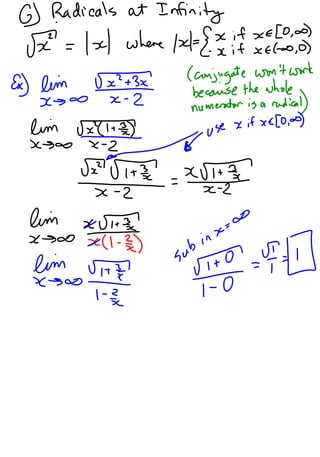 G) Radicals at Infinity
√x² = |x| where |x|={x if x∈[0,∞)
-x if x∈(-∞,0)
Ex) lim x→∞ √(x²+3x) / (x-2)
(conjugate won't work
because the whole
numerator is a radical)
lim x→∞ √(x²(1+3/x)) / (x-2)
use x if x∈[0,∞)
√x² √(1+3/x) / (x-2) = x√(1+3/x) / (x-2)
lim x→∞ x√(1+3/x) / (x(1-2/x))
sub in x=∞
lim x→∞ √(1+3/x) / (1-2/x)
√(1+0) / (1-0) = √1 / 1 = 1